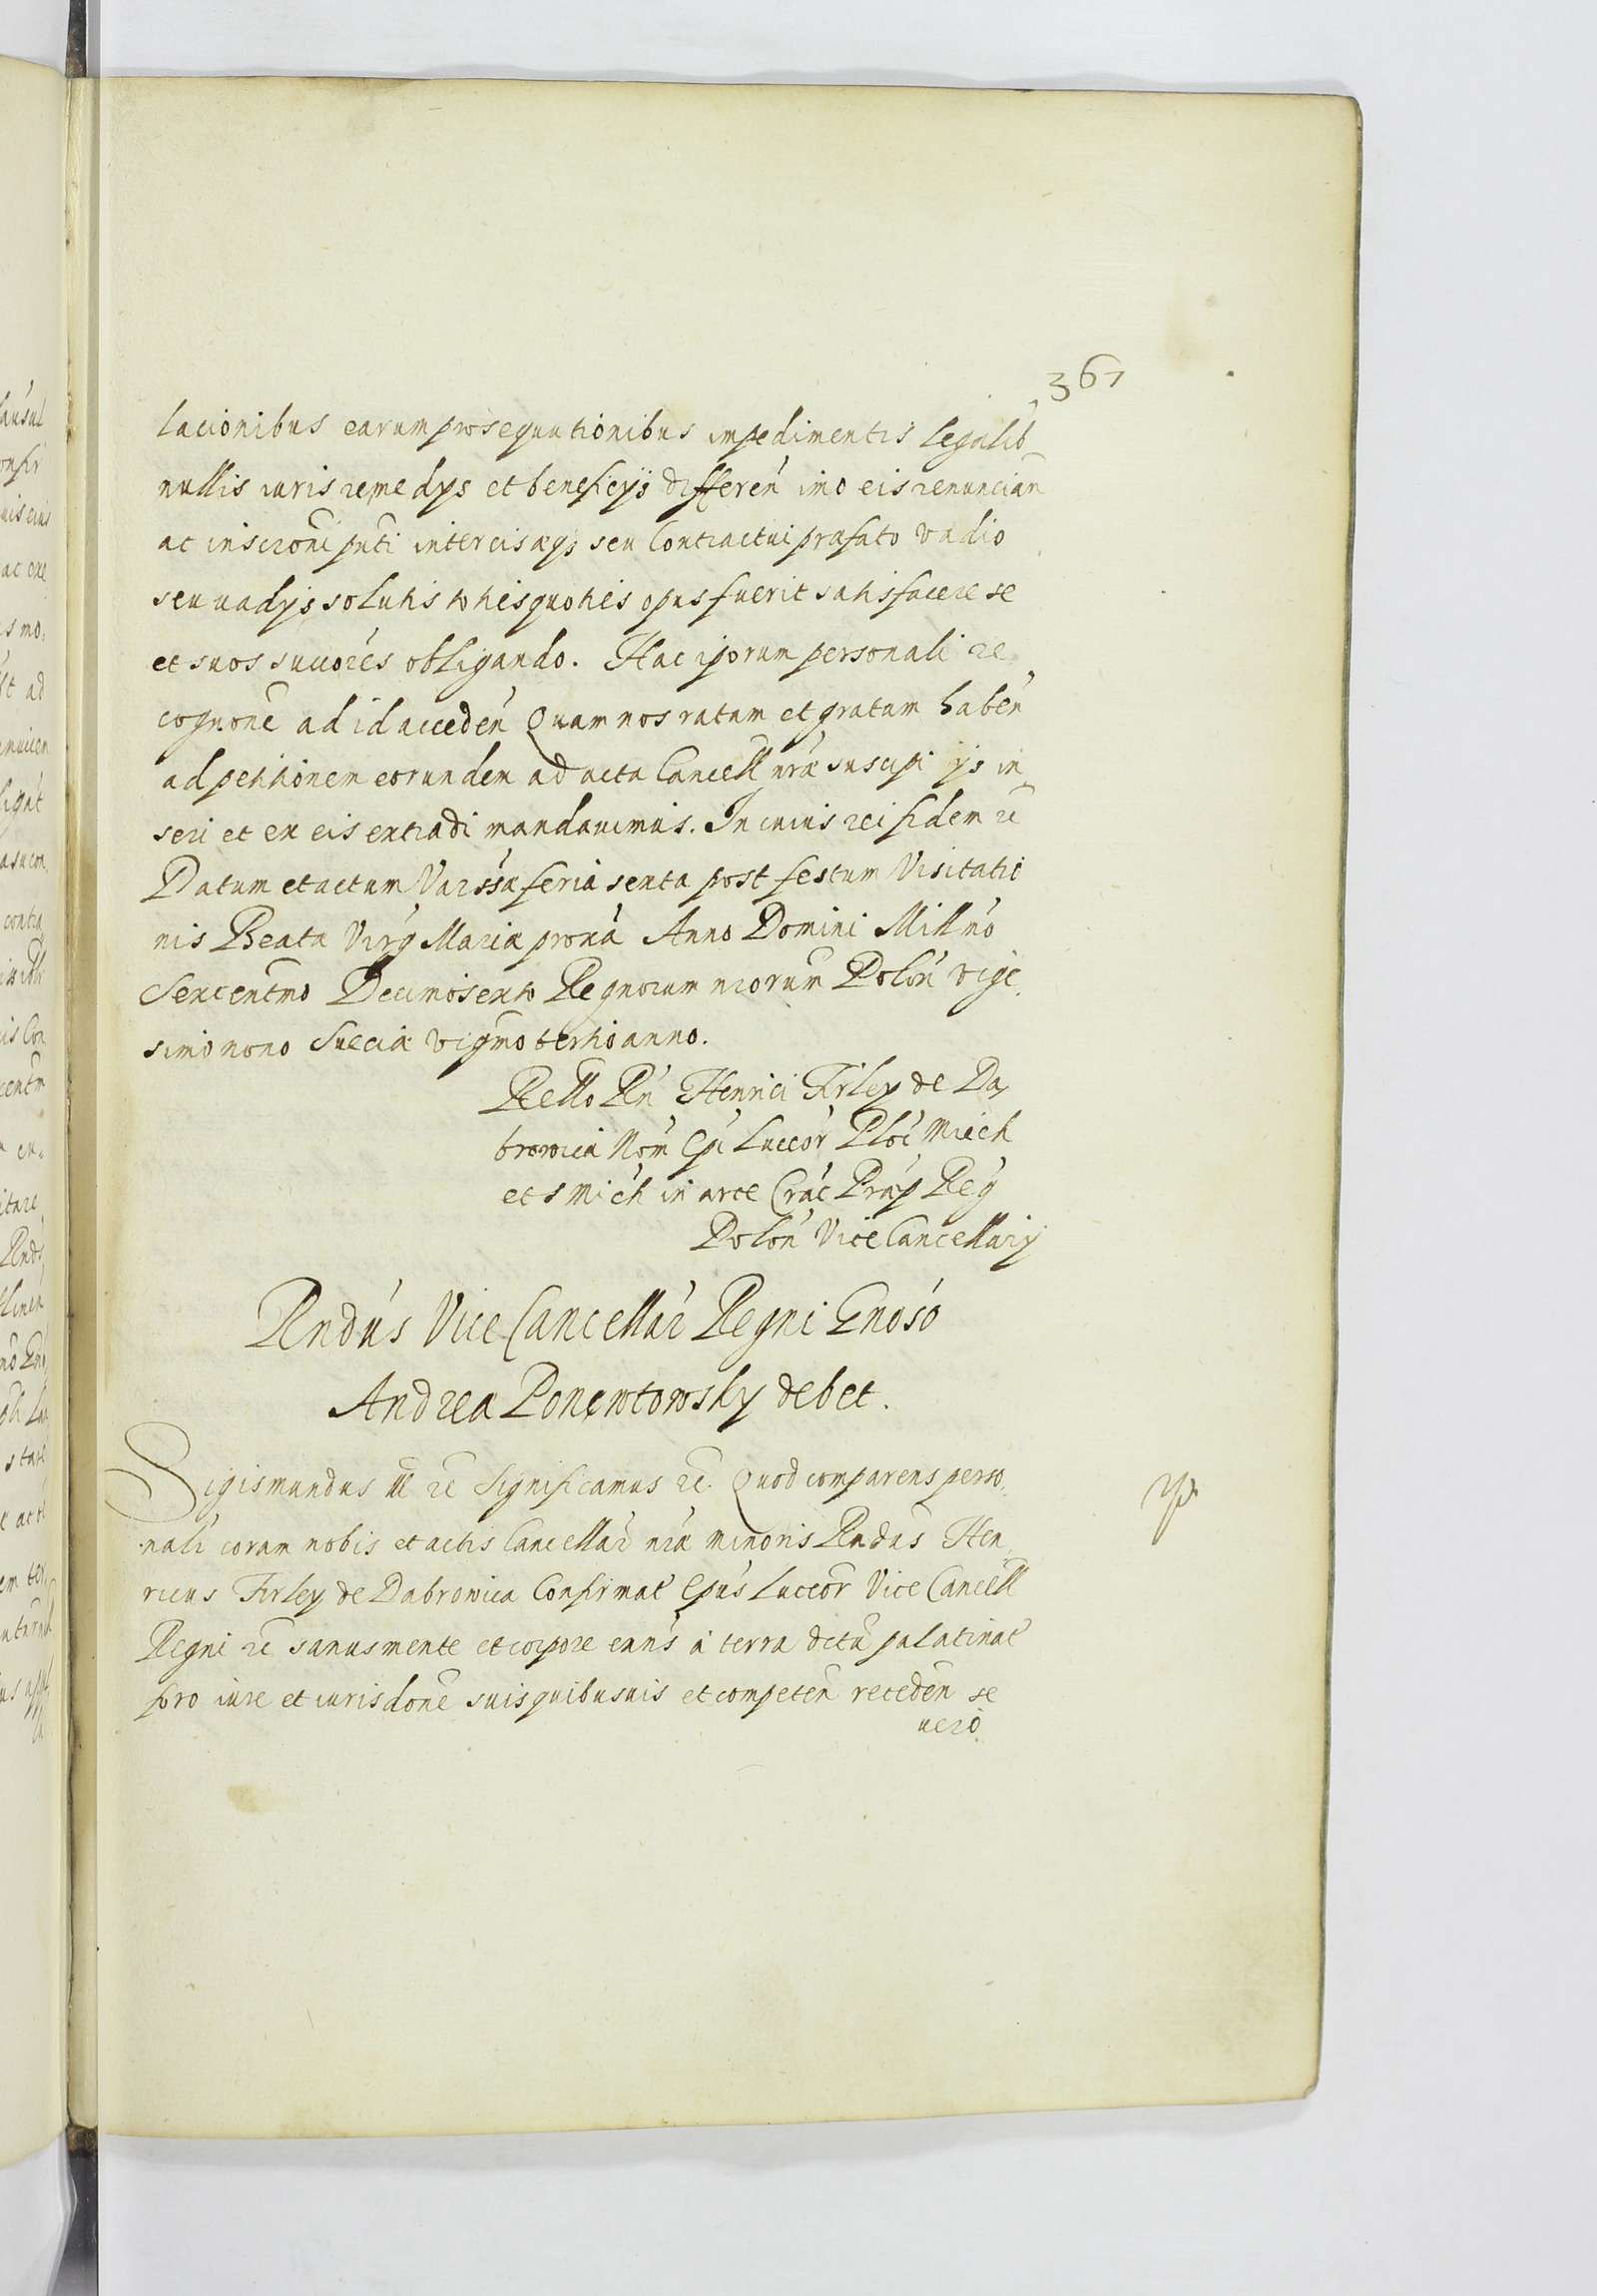 367
lacionibus earum prosequutionibus impedimentis legalib
nullis iuris remedys et beneficys differeñ imo eis renuncian
ac inscrõni pñti intercisæqȝ seu Contractui præfato vadio
seu uadys solutis toties quoties opus fuerit satisfacere se
et suos succorés obligando. Hac ipõrum personali re
cognoñe ad id acceden̄ Quam nos ratam et gratam habeñ
ad petitionem eorundem ad acta Cancell ñræ suscipi ys in
seri et ex eis extradi mandauimus. In cuius rei fidem ꝛc
Datum et actum Varssæ feria sexta post festum Visitatio
nis Beatæ Virg Mariæ proxā Anno Domini Millmó
Sexcentmo Decimosexto Regnorum nrorum Polon̄ vige
simo nono Sueciæ vigmo tertio anno.
Rello Rñ Henrici Firley de Da
browica Nom Epi Luceor Ploc Miech
et S Mich in arce Crac Præp Reg
Polon Vice Cancellary
Rndus Vice Cancellar Regni Gnoso
Andreæ Ponętowsky debet.
Sigismundus III ꝛc Significamus ꝛc Quod comparens perso
nalr coram nobis et actis Cancellar nræ minoris Rndus Hen
ricus Firley de Dabrowica Confirmat Epus Luceor Vice Cancell
Regni ꝛc sanus mente et corpore exns á terra dctú palatinat
foro iure et iurisdone suis quibusuis et competen̄ receden̄ se
uero